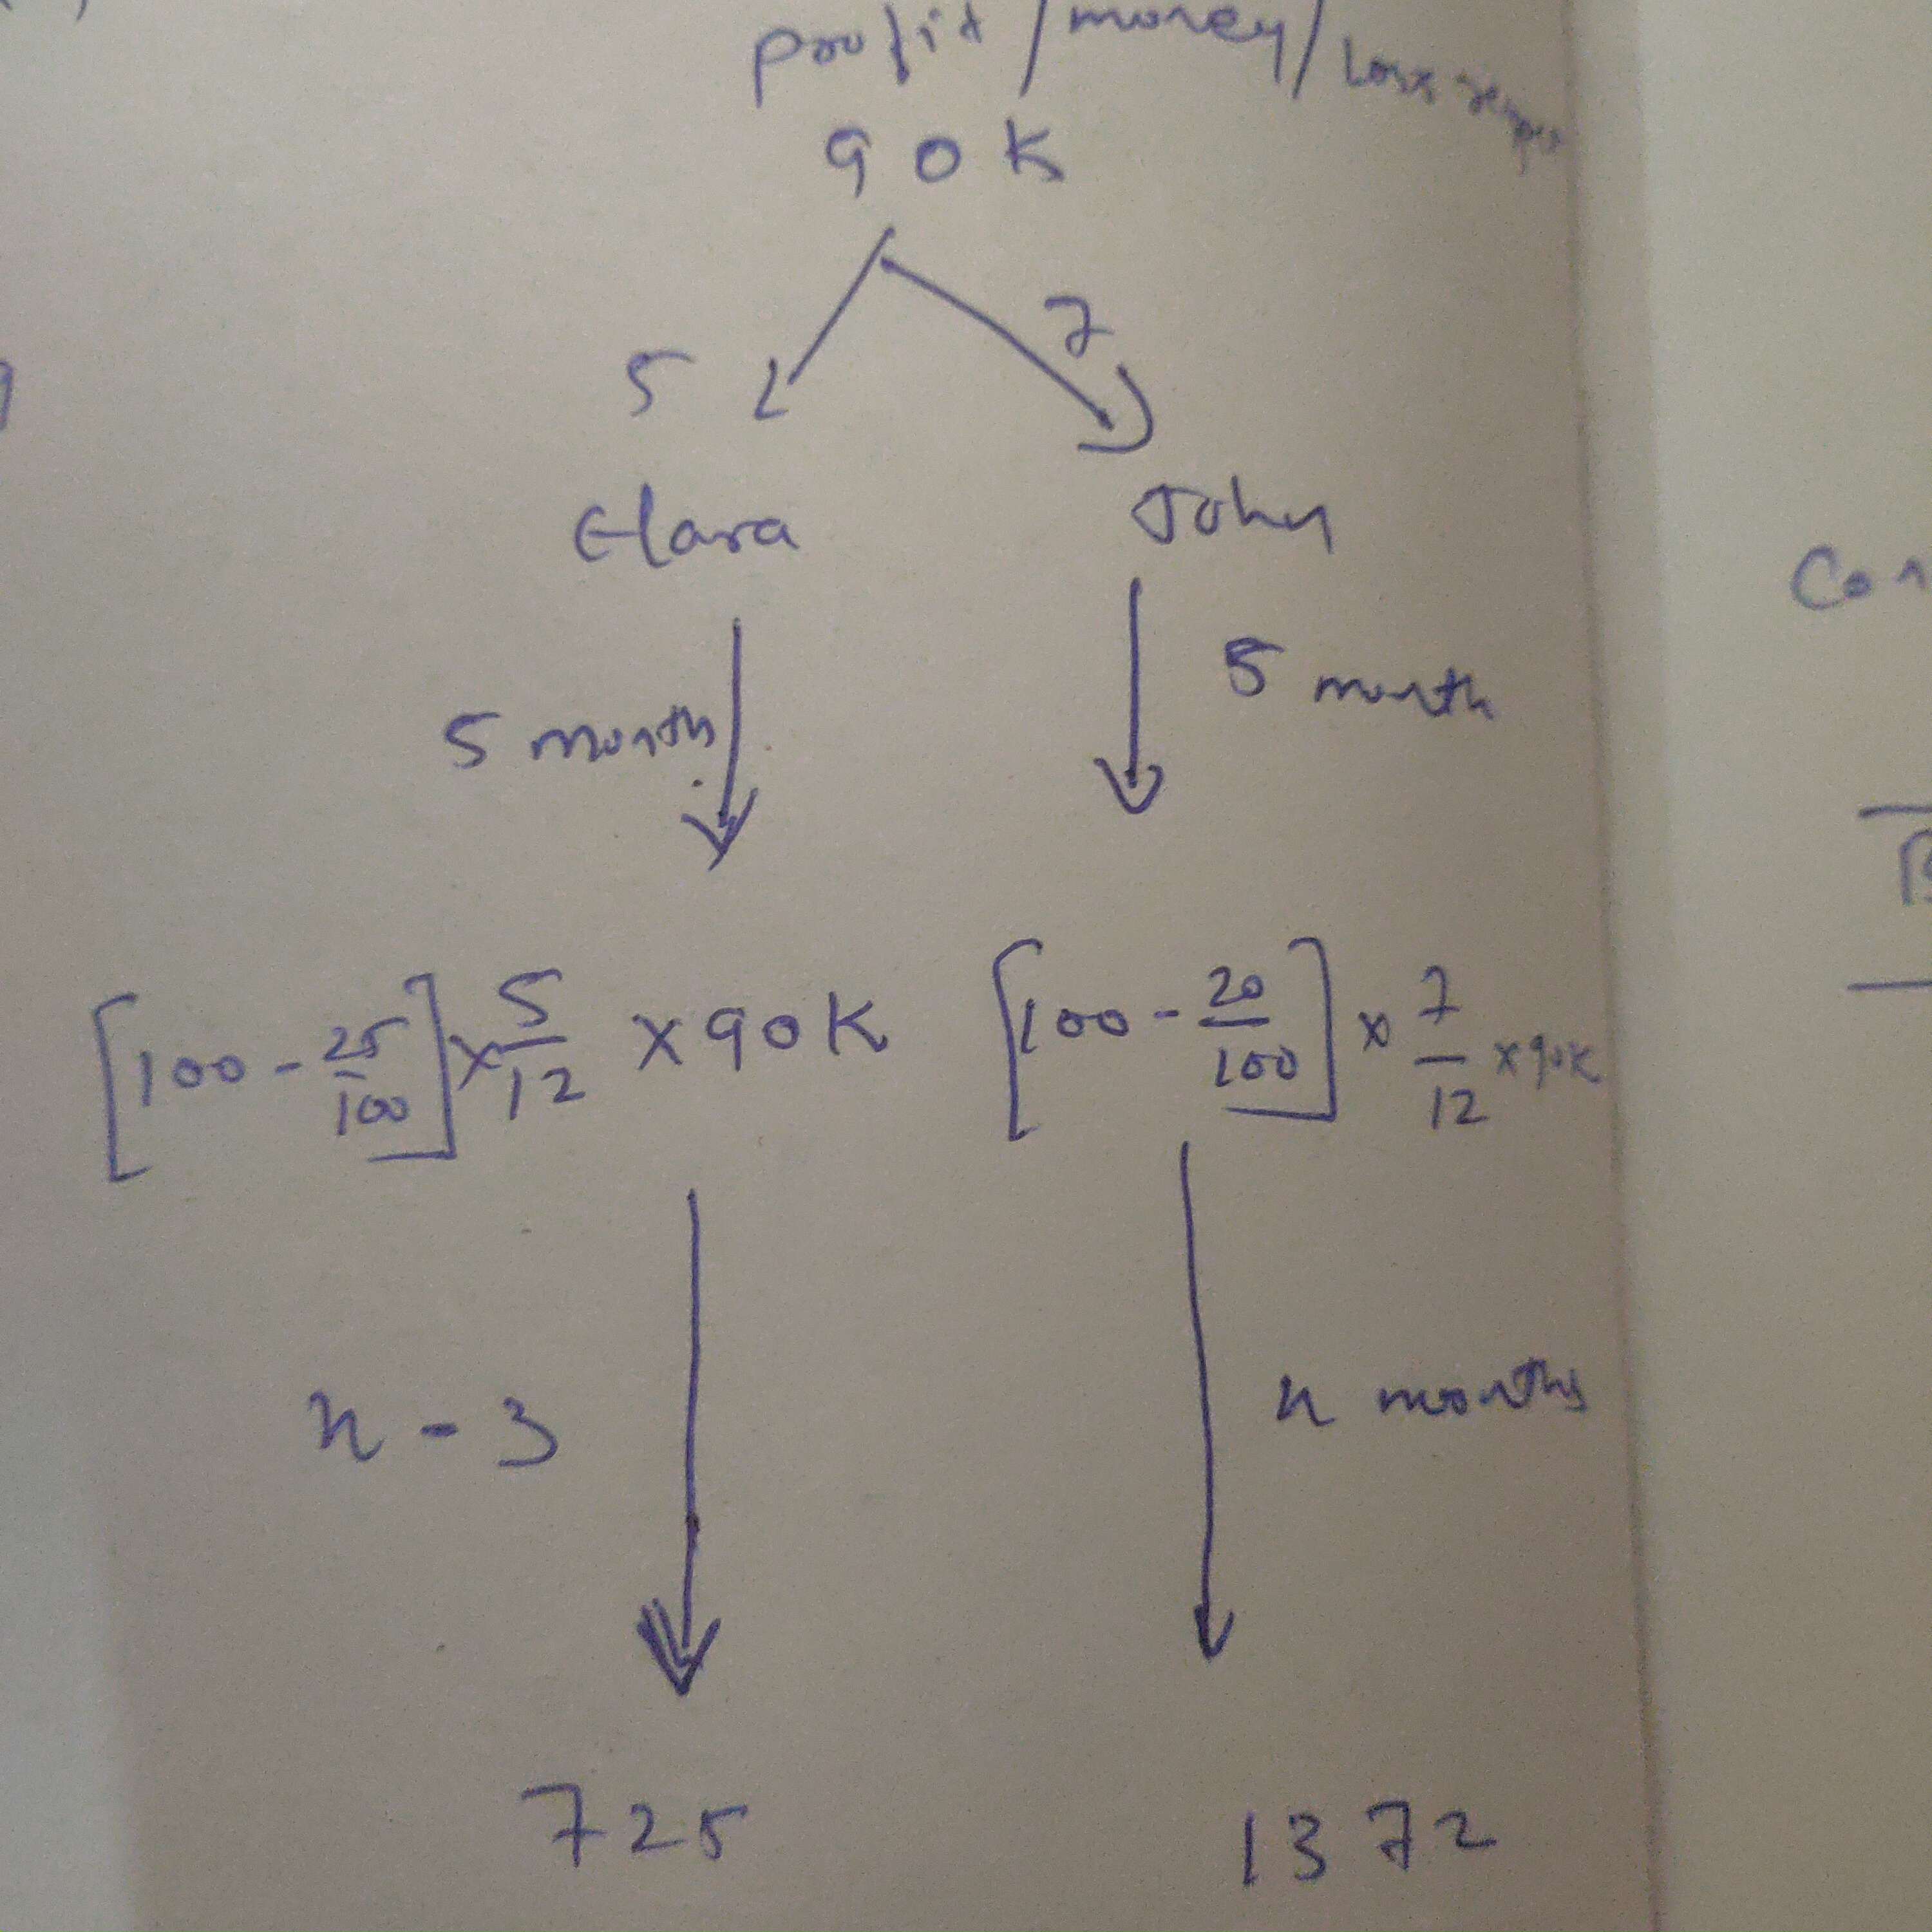 profit / money /
90K
5 7
Elara John
5 month 5 month
[100 - 25/100] × 5/12 × 90K [100 - 20/100] × 7/12 × 90K
n - 3 n months
725 1372